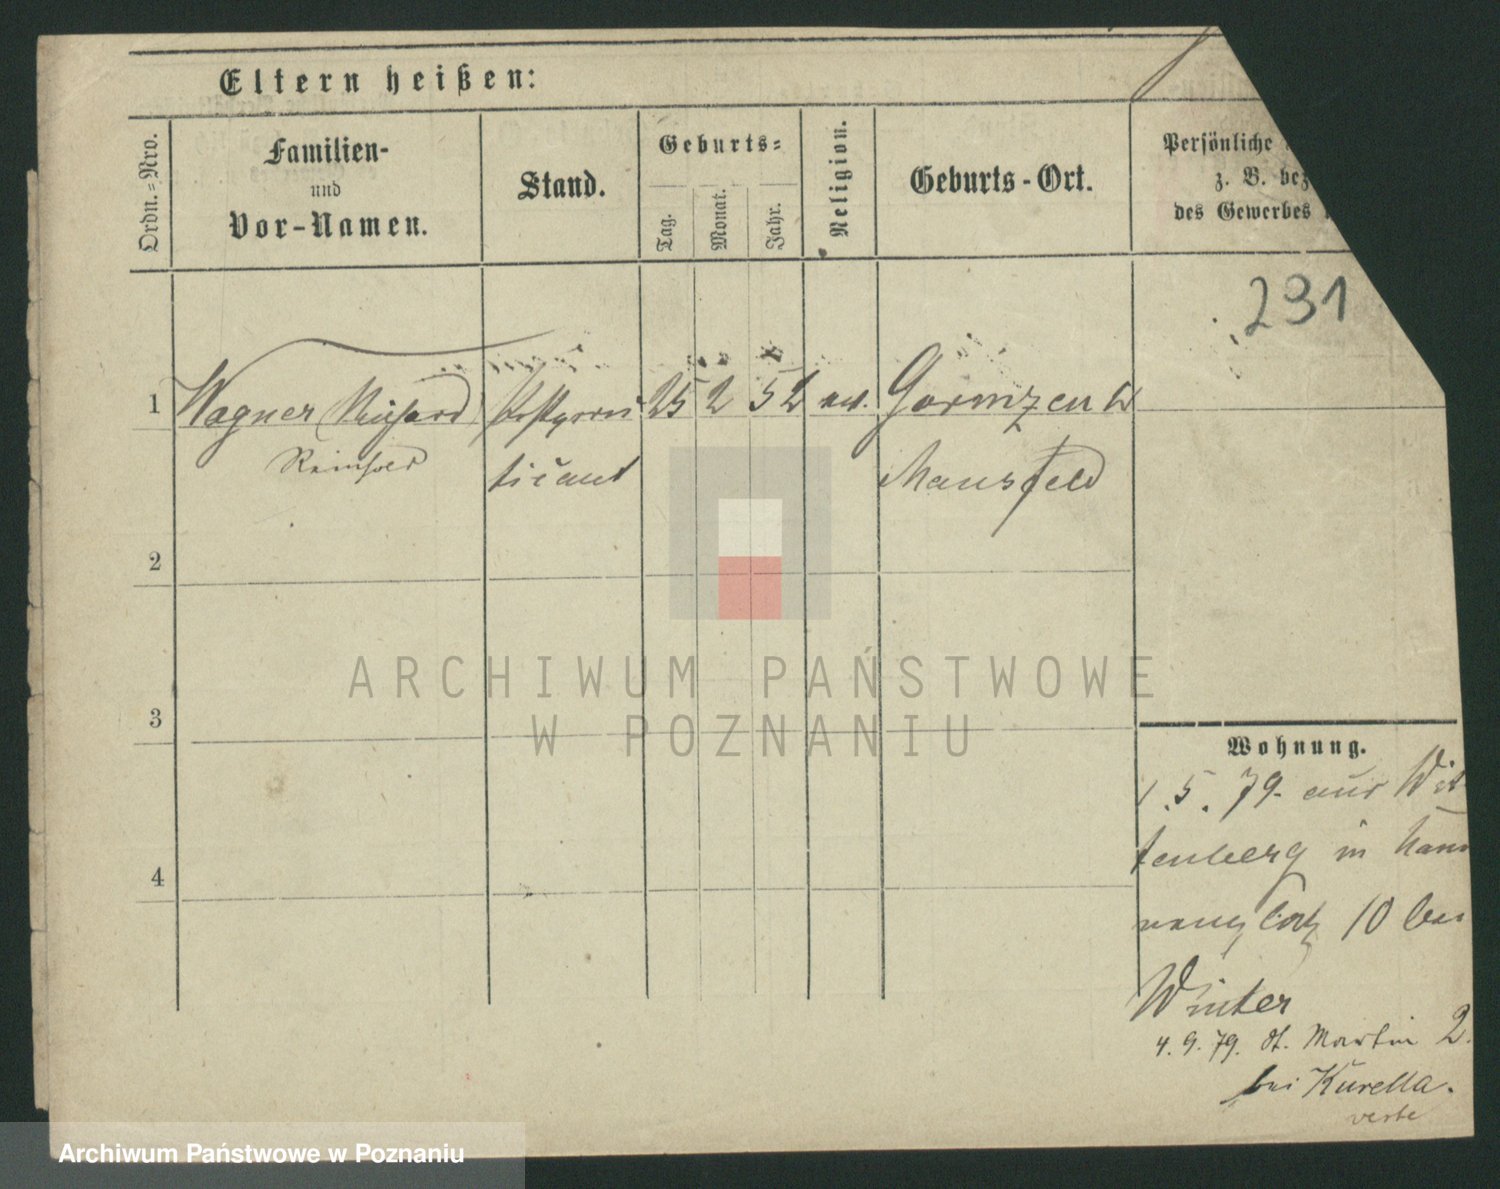 Eltern heißen:
Ordn.-Nro.
Familien-
und
Vor-Namen.
Stand.
Geburts-
Tag.
Monat.
Jahr.
Religion.
Geburts-Ort.
Persönliche
z. B. bez
des Gewerbes
231
1 Wagner 25 2 52
Reinhold Mansfeld
2
3
4
Wohnung.
1.5.79. aus Wit
tenberg in
10 bei
Winter
4.9.79. St. Martin 2.
bei Kurella.
verte
ARCHIWUM PAŃSTWOWE
W POZNANIU
Archiwum Państwowe w Poznaniu